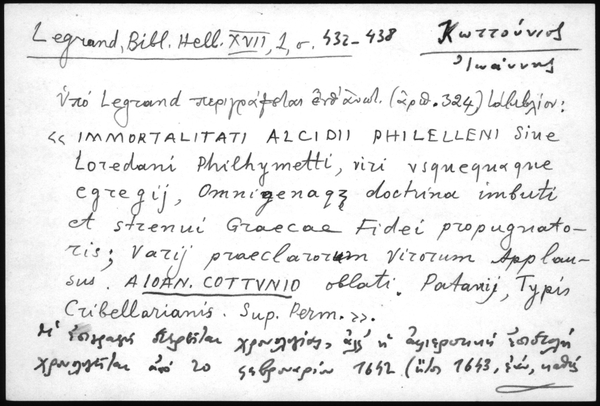 Legrand, Bibl. Hell. XVII, 1, σ. 432-438
Κωττούνιος
Ἰωάννης
Ὑπό Legrand περιγράφεται (ἀρθ. 324) βιβλίον:
« IMMORTALITATI ALCIDII PHILELLENI Siue
Loredani Philhymetti, viri vsquequaque
egregij, Omnigenaqȝ doctrina imbuti
et strenui Graecae Fidei propugnato-
ris; Varij praeclarorum virorum Applau-
sus. A IOAN. COTTVNIO oblati. Patauij, Typis
Cribellarianis. Sup. Perm. ».
Ἡ στερεῖται χρονολογίας, ἀλλ' ἡ ἀφιερωτική ἐπιστολή
χρονολογεῖται ἀπό 20 Φεβρουαρίου 1642 ( 1643, καθώς